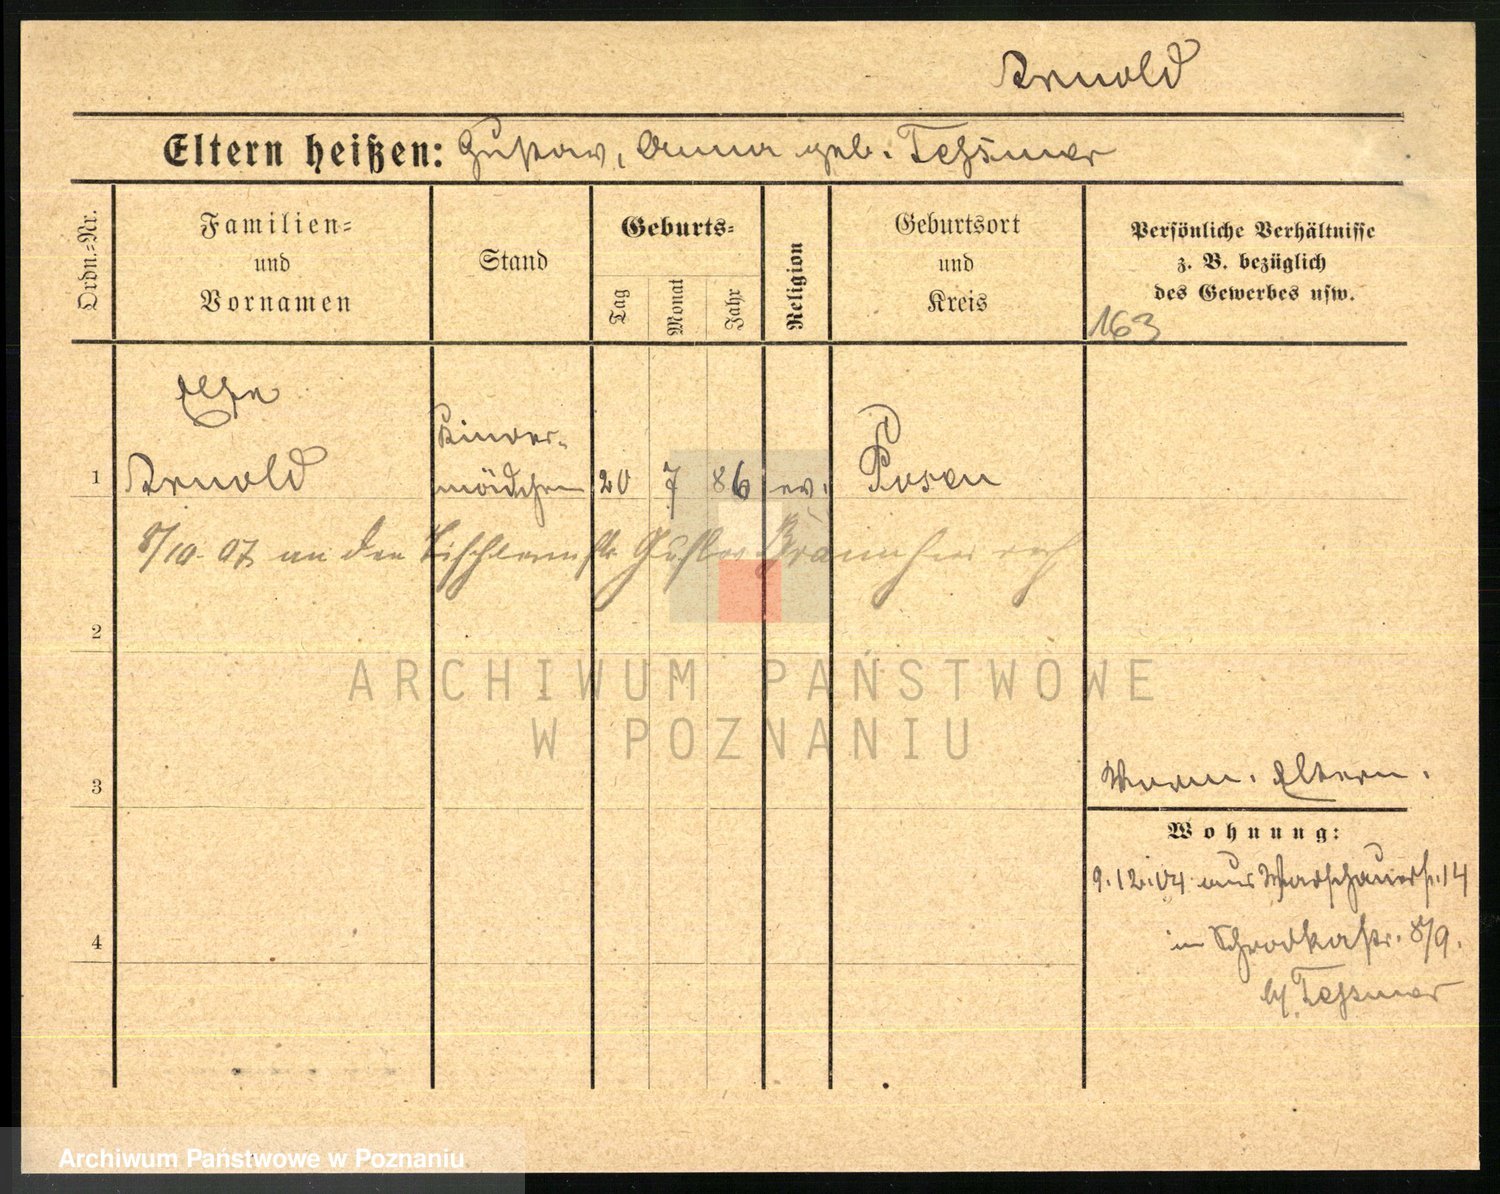 Arnold
Eltern heißen: Gustav, Anna geb. Tessmer
Ordn.=Nr.
Familien=
und
Vornamen
Stand
Geburts=
Tag
Monat
Jahr
Religion
Geburtsort
und
Kreis
Persönliche Verhältnisse
z. B. bezüglich
des Gewerbes usw.
163
Else
Kinder-
1 Arnold mädchen 20 7 86 ev. Posen
8/10. 07 an den Tischlermstr Gustav verh
2
ARCHIWUM PAŃSTWOWE
W POZNANIU
3
Eltern.
Wohnung:
9.12.04 aus Warschauerstr. 14
in Schrodkastr. 8/9.
b/ Tessmer
4
Archiwum Państwowe w Poznaniu